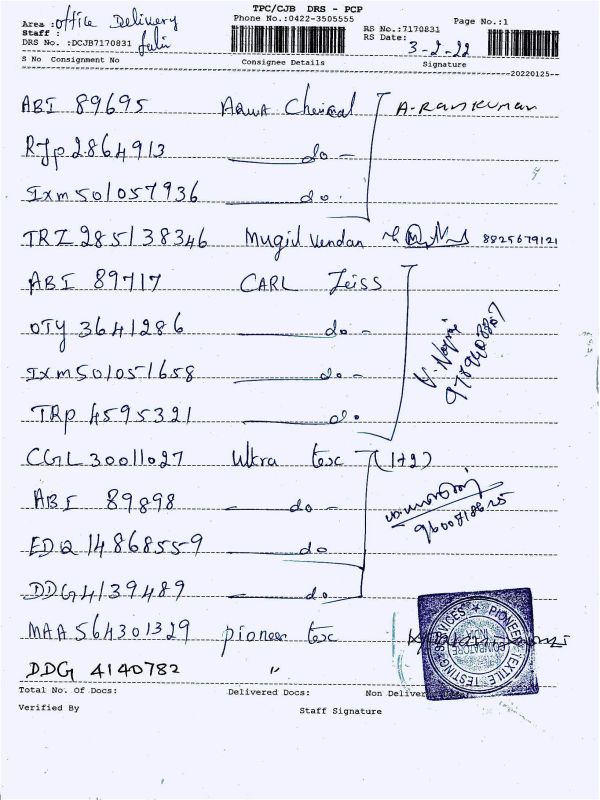 TPC/CJB DRS - PCP
Area : office Delivery
Phone No.:0422-3505555
Page No.:1
Staff :
RS No.:7170831
DRS No. :DCJB7170831
RS Date:
3-2-22
S No Consignment No Consignee Details Signature
20220125
ABI 89695 Aqua Chemical A-Ramkumar
RJP 2864913 do -
IXM 501057936 do -
TRZ 285138346 Mugil Vendan 8825679121
ABI 89717 CARL Zeiss
OTY 3641286 do -
IXM 501051658 do -
TRP 4595321 do
9789408867
CGL 30011027 Ultra tex (1+2)
ABI 89898 do -
EDQ 14868559 do
DDG 4139489 do
MAA 564301329 pioneer tex
PIONEER TEXTILE TESTING SERVICES
COIMBATORE INDIA
DDG 4140782 "
Total No. Of Docs: Delivered Docs: Non Deliver
Verified By Staff Signature